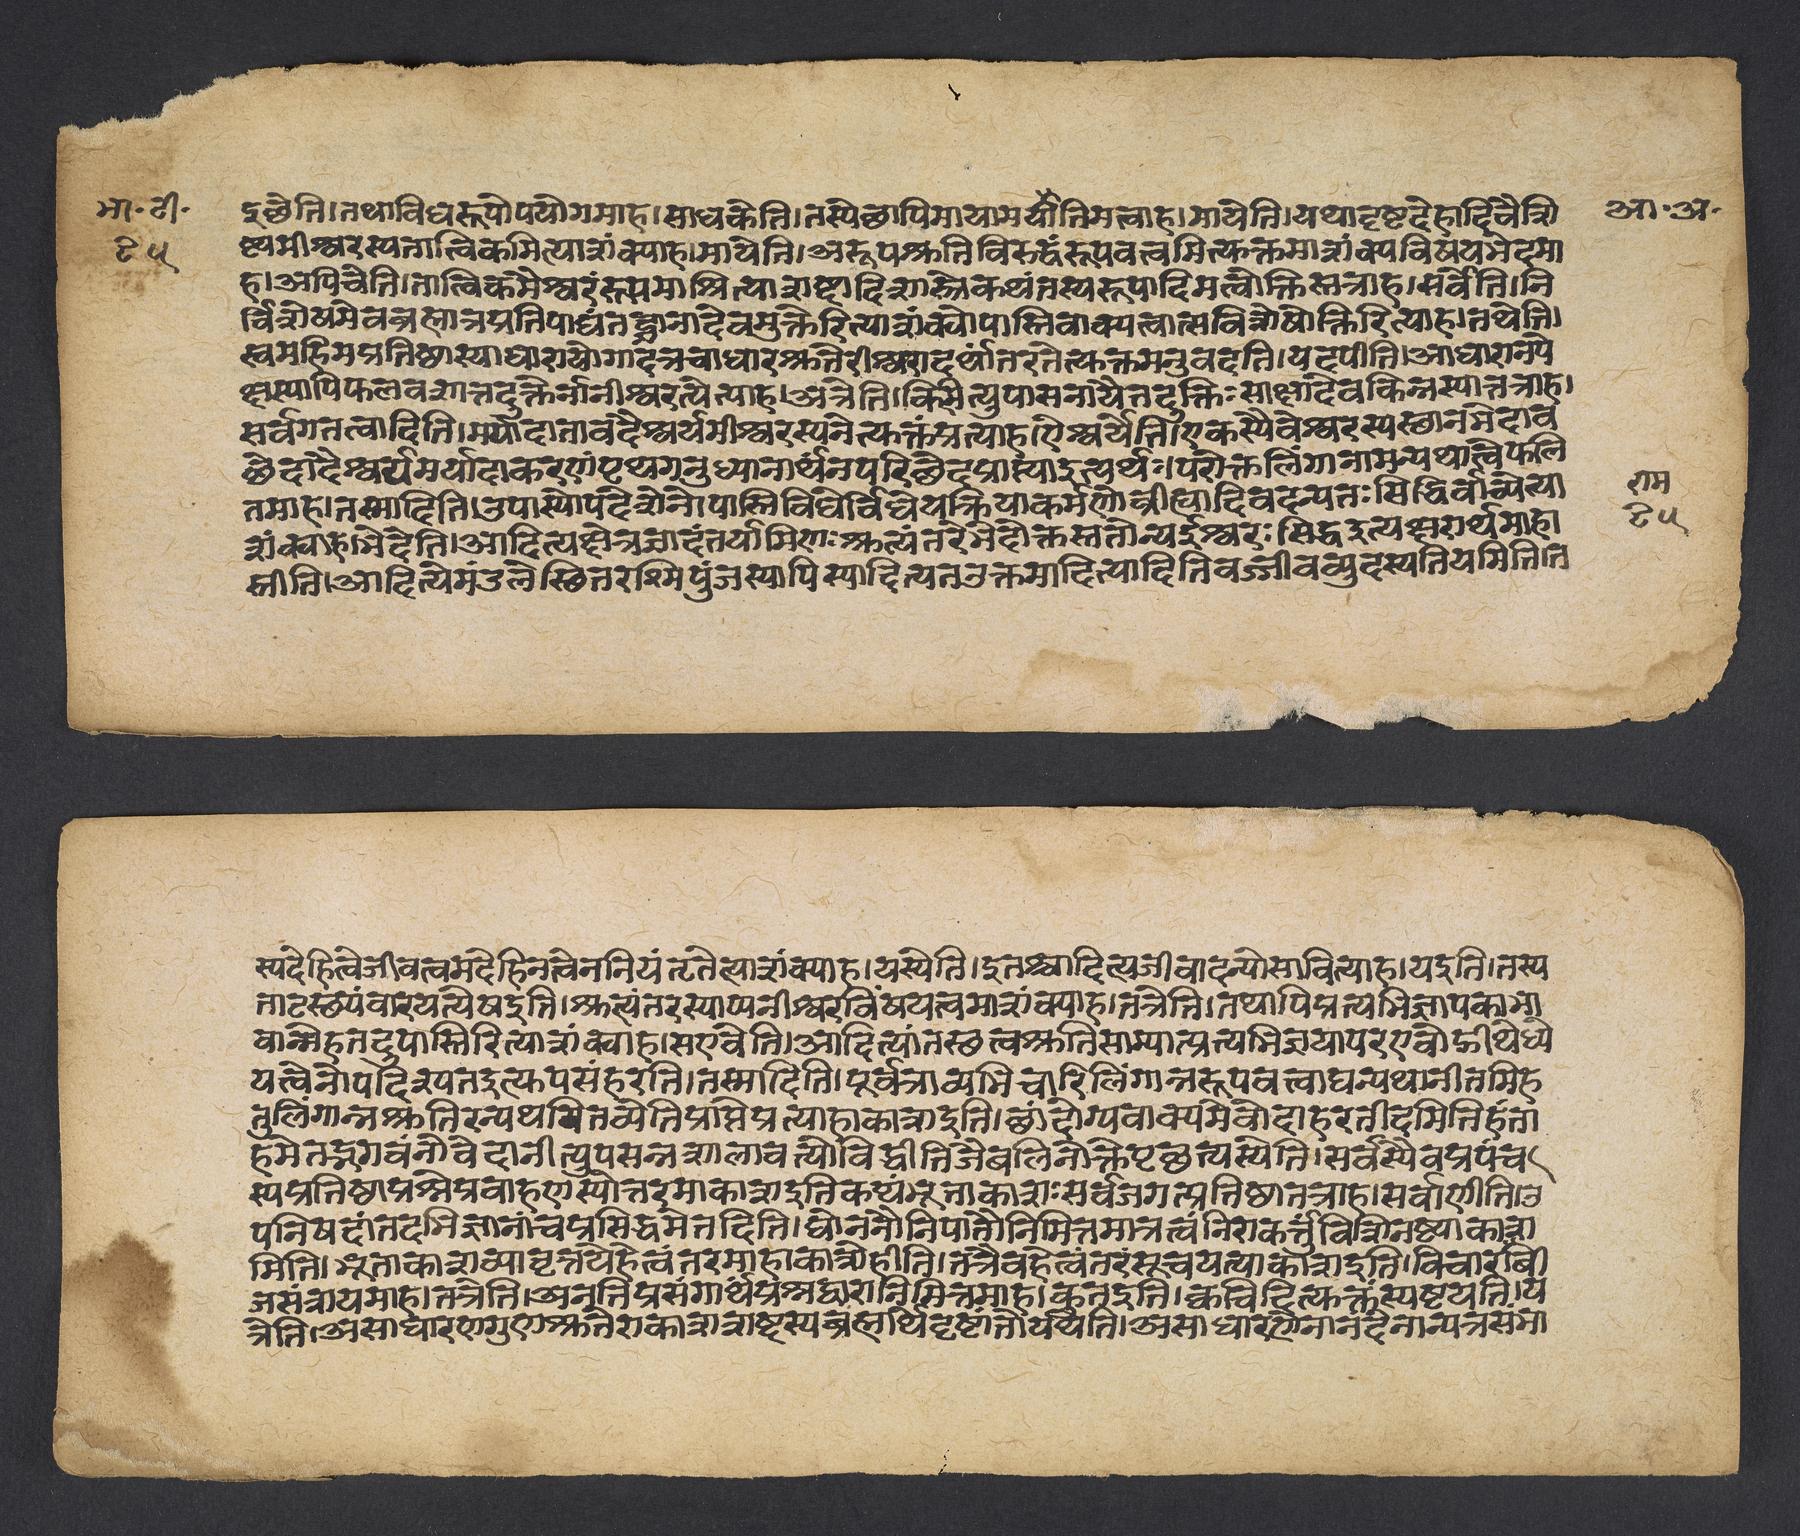 भा॰ टी॰
८५
आ॰ अ॰
दुछेति।तथाविधरूपोपयोगमाह।साधकेति।तस्येछापिमायामयीतिमत्वाह।मायेति।यथादृष्टदेहादिवैशि
ष्ट्यमीश्वरस्यतात्विकमित्याशंक्याह।मायेति।अरूपश्रुतिविरुद्धंरूपवत्त्वमित्युक्तमाशंक्यविषयभेदमा
ह।अपिचेति।तात्विकमैश्वरंरूपमाश्रित्याशब्दादिशास्त्रेकथंतस्यरूपादिमत्वोक्तिस्तत्राह।सर्वेति।नि
र्विशेषमेवब्रह्मात्रप्रतिपाद्यंतद्ज्ञानादेवमुक्तेरित्याशंक्योपास्तिवाक्यत्वात्सविशेषोक्तिरित्याह।तथेति।
स्वमहिमप्रतिष्ठास्याधारायोगादत्रचाधारश्रुतेरीश्वरादर्थांतरतेत्युक्तमनुवदति।यदपीति।आधारानपे
क्षस्यापिफलवशात्तदुक्तेर्नानीश्वरत्येत्याह।अत्रेति।किमित्युपासनायैतदुक्तिःसाक्षादेवकिन्नस्यात्तत्राह।
सर्वगतत्वादिति।मर्यादातावदैश्वर्यमीश्वरस्यनेत्युक्तंप्रत्याह।ऐश्वर्येति।एकस्यैवेश्वरस्यस्छानभेदाव
छेदादैश्वर्यमर्यादाकरणंपृथगनुध्यानार्थंनपरिछेदप्राप्त्याइत्यर्थः।परोक्तलिंगानामन्यथात्वेफलि
तमाह।तस्मादिति।उपास्योपदेशेनोपास्तिविधेर्विधेयक्रियाकर्मणोव्रीह्यादिवदन्यतःसिद्धिर्वाच्येत्या
शंक्याह।भेदेति।आदित्यक्षेत्रज्ञादंतर्यामिणःश्रुत्यंतरेभेदोक्तस्ततोन्यईश्वरःसिद्धइत्यक्षरार्थमाहा
स्तीति।आदित्येमंडलेस्छितरश्मिपुंजस्यापिस्यादित्यतउक्तमादित्यादितिवज्जीवव्युदस्यतियमिति।त
राम
८५
स्यदेहित्वेजीवत्वमदेहिनत्वेननियंतृतेत्याशंक्याह।यस्येति।इतश्चादित्यजीवादन्योसावित्याह।यइति।तस्य
ताटस्छ्यंवारयत्येषइति।श्रुत्यंतरस्याप्यनीश्वरविषयत्वमाशंक्याह।तत्रेति।तथापिप्रत्यभिज्ञापकाभा
वान्नेहतदुपास्तिरित्याशंक्याह।सएवेति।आदित्यांतस्छत्वश्रुतिसाम्यात्प्रत्यभिज्ञयापरएवोद्गीथेध्ये
यत्वेनोपदिश्यतइत्युपसंहरति।तस्मादिति।पूर्वत्राव्यभिचारिलिंगान्नरूपवत्त्वाद्यन्यथानीतमिह
तुलिंगान्नश्रुतिरन्यथयितव्येतिप्राप्तेप्रत्याहाकाशइति।छांदोग्यवाक्यमेवोदाहरतीदमितिर्हंता
हमेतद्भगवंनोवेदानीत्युपसन्नशालावत्योविद्धीतिजैबलिनोक्तेपृछत्यस्येति।सर्वस्यैवप्रपंच
स्यप्रतिष्ठाप्रश्नेप्रवाहणस्योत्तरमाकाशइतिकथंभूताकाशःसर्वजगत्प्रतिष्ठातत्राह।सर्वाणीति।उ
पनिषदांतदभिज्ञानांचप्रसिद्धमेतदिति।द्योतनौनिपातौनिमित्तमात्रत्वंनिराकर्त्तुंविशिनष्ट्याकाशा
मिति।भूताकाशव्यावृत्तयेहेत्वंतरमाहाकाशोहीति।तत्रैवहेत्वंतरंसूचयत्याकाशइति।विचारबी
जसंशयमाह।तत्रेति।अनुत्तिप्रसंगार्थंप्रश्नद्वारानिमित्तमाह।कुतइति।क्वचिदित्युक्तंस्पष्टयति।य
त्रेति।असाधारणगुणश्रुतेराकाशशब्दस्यब्रह्मार्थेदृष्टांतोयथेति।असाधारणेनानंदेनान्यत्रसंभा